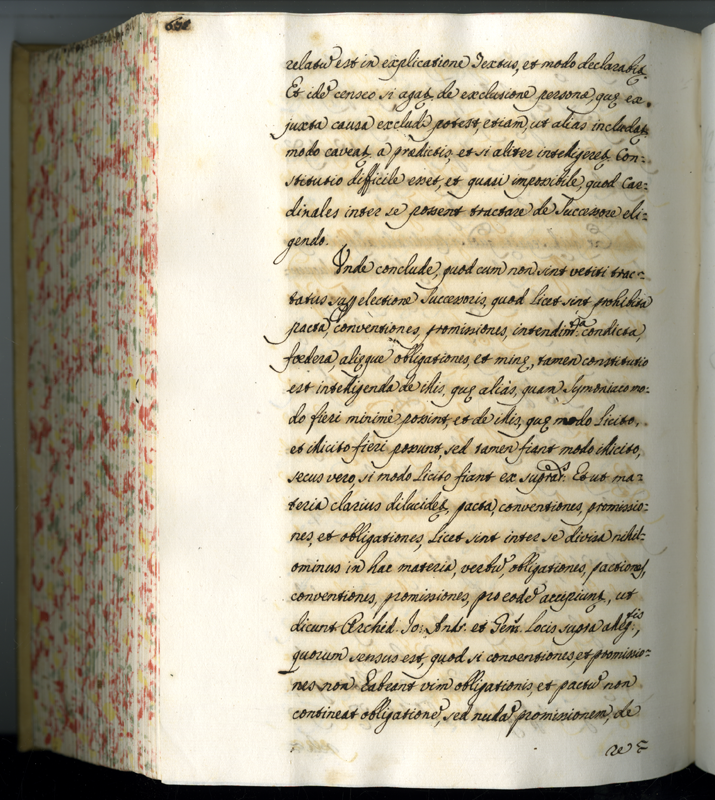 relatũ est in explicatione Textus, et modo declarabit.
Et idẽ censeo si agat. de exclusione personæ, quę ex
juxta causa excludi potest, etiam, ut alias includat.
modo caveat. a prædictis, et si aliter intelligeret. Con:
stitutio difficile esset, et quasi impossibile, quod Car:
dinales inter se possent tractare de Successore eli:
gendo.
Unde conclude, quod cum non sint vetiti trac:
tatus sup. electione Successoris, quod licet sint prohibita
pacta, conventiones, promissiones, condicta,
fœdera, aliæque obligationes, et minę, tamen constitutio
est intelligenda de illis, quę alias, quam Symoniaco mo:
do fieri minimè possint, et de illis, quę modo licito,
et illicito fieri possunt, sed tamen fiant modo illicito,
secus vero, si modo licito fiant ex Et ut ma:
teria clarius dilucidet, pacta, conventiones, promissio:
nes, et obligationes, licet sint inter se divisa nihil:
ominus in hac materia, verbũ, obligationes, pactiones,
conventiones, promissiones, pro eodẽ accipiunt., ut
dicunt Archid. Jo: Andr. et Gem. locis supra
quorum sensus est, quod si conventiones, et promissio:
nes non habeant vim obligationis, et pactũ non
contineat obligationẽ, sed nudã promissionem, de
re